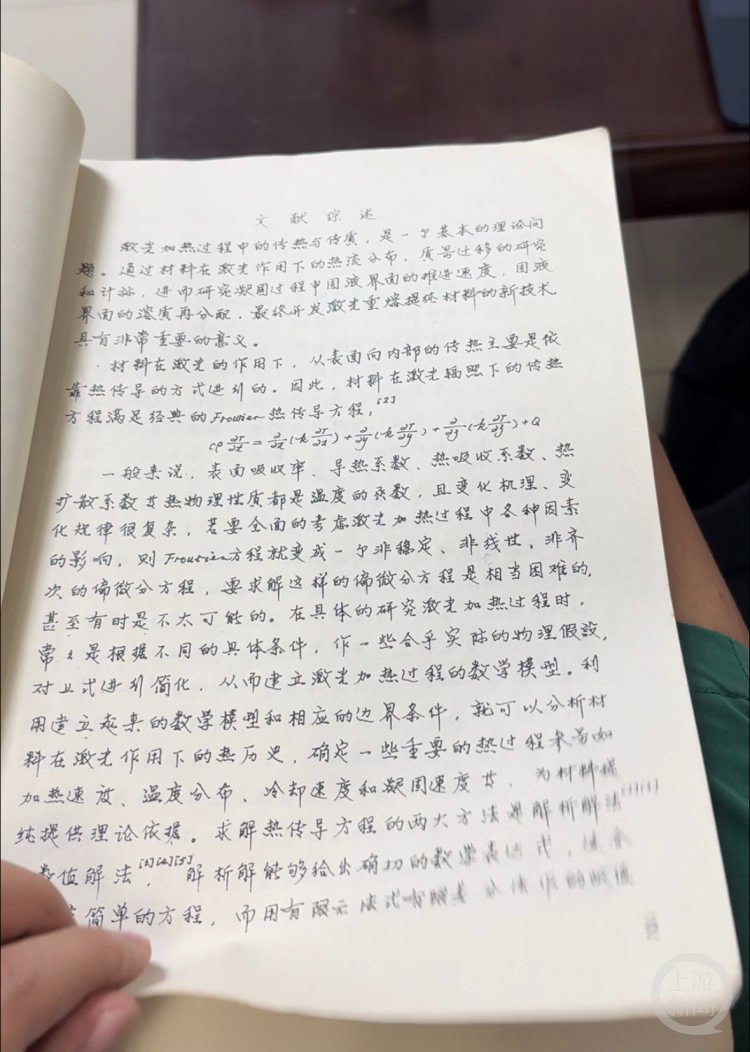 文献综述
激光加热过程中的传热与传质，是一个基本的理论问
题。通过材料在激光作用下的热流分布、质量迁移的研究
和计标，进而研究凝固过程中固液界面的推进速度，固液
界面的溶质再分配，最终开发激光重熔提纯材料的新技术，
具有非常重要的意义。
材料在激光的作用下，从表面向内部的传热主要是依
靠热传导的方式进行的。因此，材料在激光辐照下的传热
方程满足经典的Frourier热传导方程：[2]
cρ ∂T/∂t = ∂/∂x(-k ∂T/∂x) + ∂/∂y(-k ∂T/∂y) + ∂/∂z(-k ∂T/∂z) + Q
一般来说，表面吸收率、导热系数、热吸收系数、热
扩散系数等热物理性质都是温度的函数，且变化机理、变
化规律很复杂，若要全面的考虑激光加热过程中各种因素
的影响，则Frourier方程就变成一个非稳定、非线性、非齐
次的偏微分方程，要求解这样的偏微分方程是相当困难的，
甚至有时是不太可能的。在具体的研究激光加热过程时，
常々是根据不同的具体条件，作一些合乎实际的物理假设，
对上式进行简化，从而建立激光加热过程的数学模型。利
用建立起来的数学模型和相应的边界条件，就可以分析材
料在激光作用下的热历史，确定一些重要的热过程参量如
加热速度、温度分布、冷却速度和凝固速度等，为材料提
纯提供理论依据。求解热传导方程的两大方法是解析解法
数值解法，解析解能够给出确切的数学表达式，
简单的方程，而用有限元法或有限差分法
上游新闻